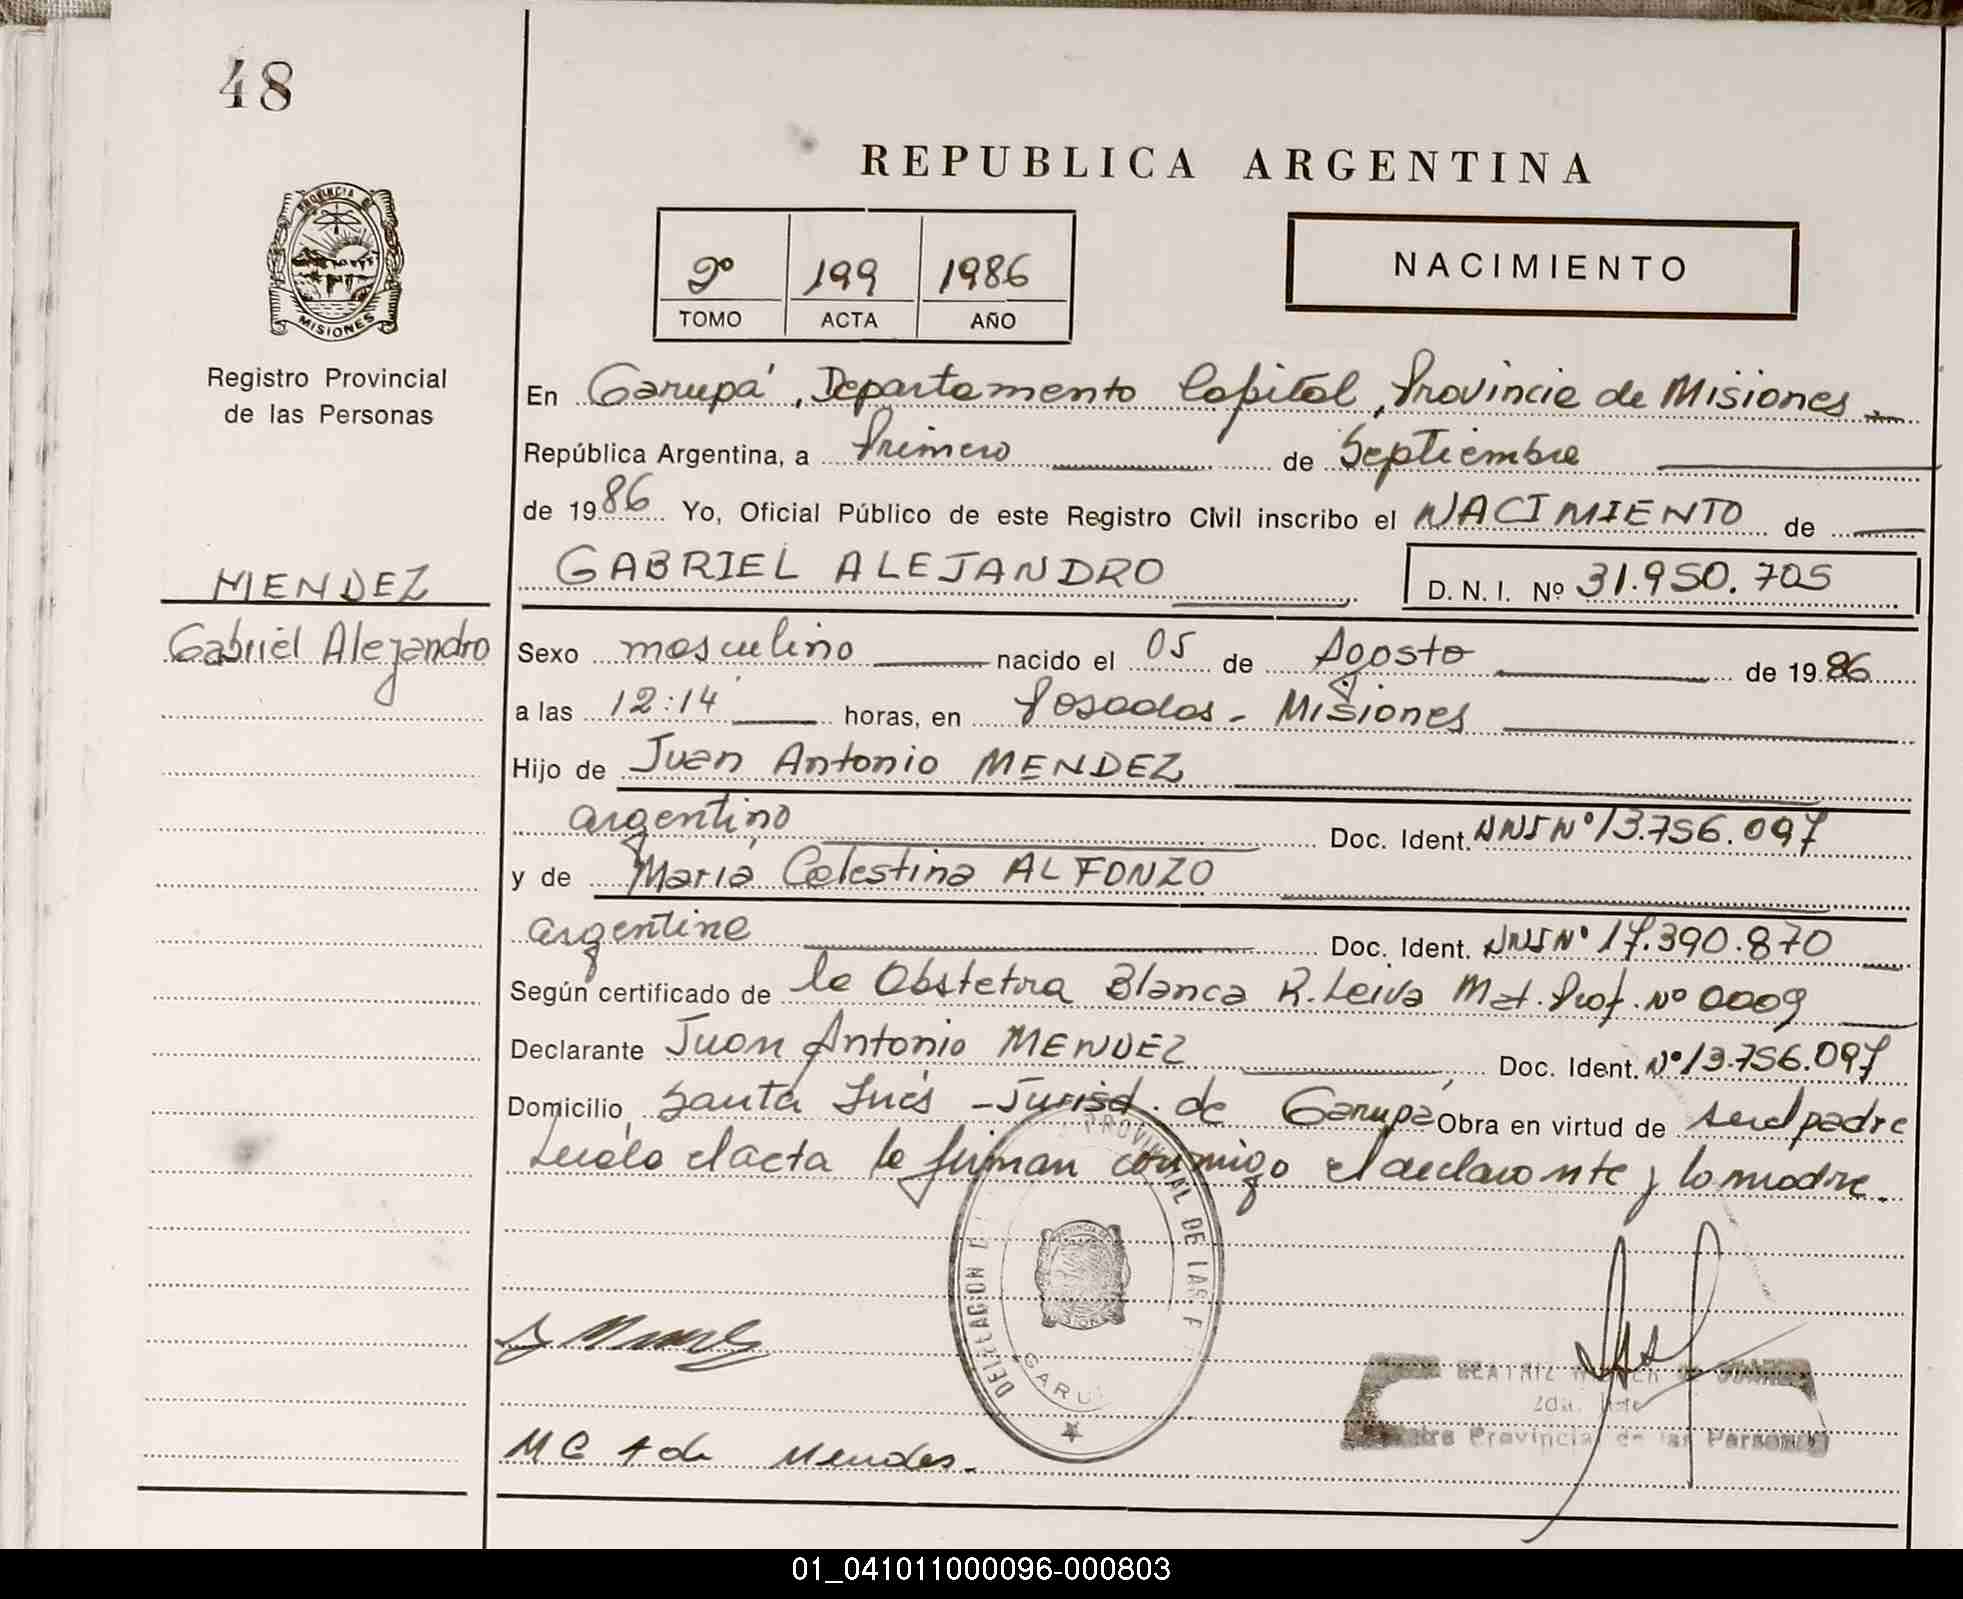 48
REPUBLICA ARGENTINA
PROVINCIA DE
MISIONES
Registro Provincial
de las Personas
2º 199 1986
TOMO ACTA AÑO
NACIMIENTO
En Garupá, Departamento Capital, Provincia de Misiones
República Argentina, a Primero de Septiembre
de 1986 Yo, Oficial Público de este Registro Civil inscribo el NACIMIENTO de
GABRIEL ALEJANDRO D. N. I. Nº 31.950.705
MENDEZ
Gabriel Alejandro
Sexo masculino nacido el 05 de Agosto de 1986
a las 12:14 horas, en Posadas - Misiones
Hijo de Juan Antonio MENDEZ
argentino Doc. Ident. DNI Nº 13.756.097
y de María Celestina ALFONZO
argentina Doc. Ident. DNI Nº 17.390.870
Según certificado de la Obstetra Blanca R. Leiva Mat. Prof. Nº 0009
Declarante Juan Antonio MENDEZ Doc. Ident. Nº 13.756.097
Domicilio Santa Inés - Jurisd. de Garupá Obra en virtud de ser el padre
Leída el acta la firman conmigo el declarante y la madre.
DELEGACION PROVINCIAL DE LAS
GARU
BEATRIZ
2da.
Provincial de las Personas
M C A de Mendes.
01_041011000096-000803